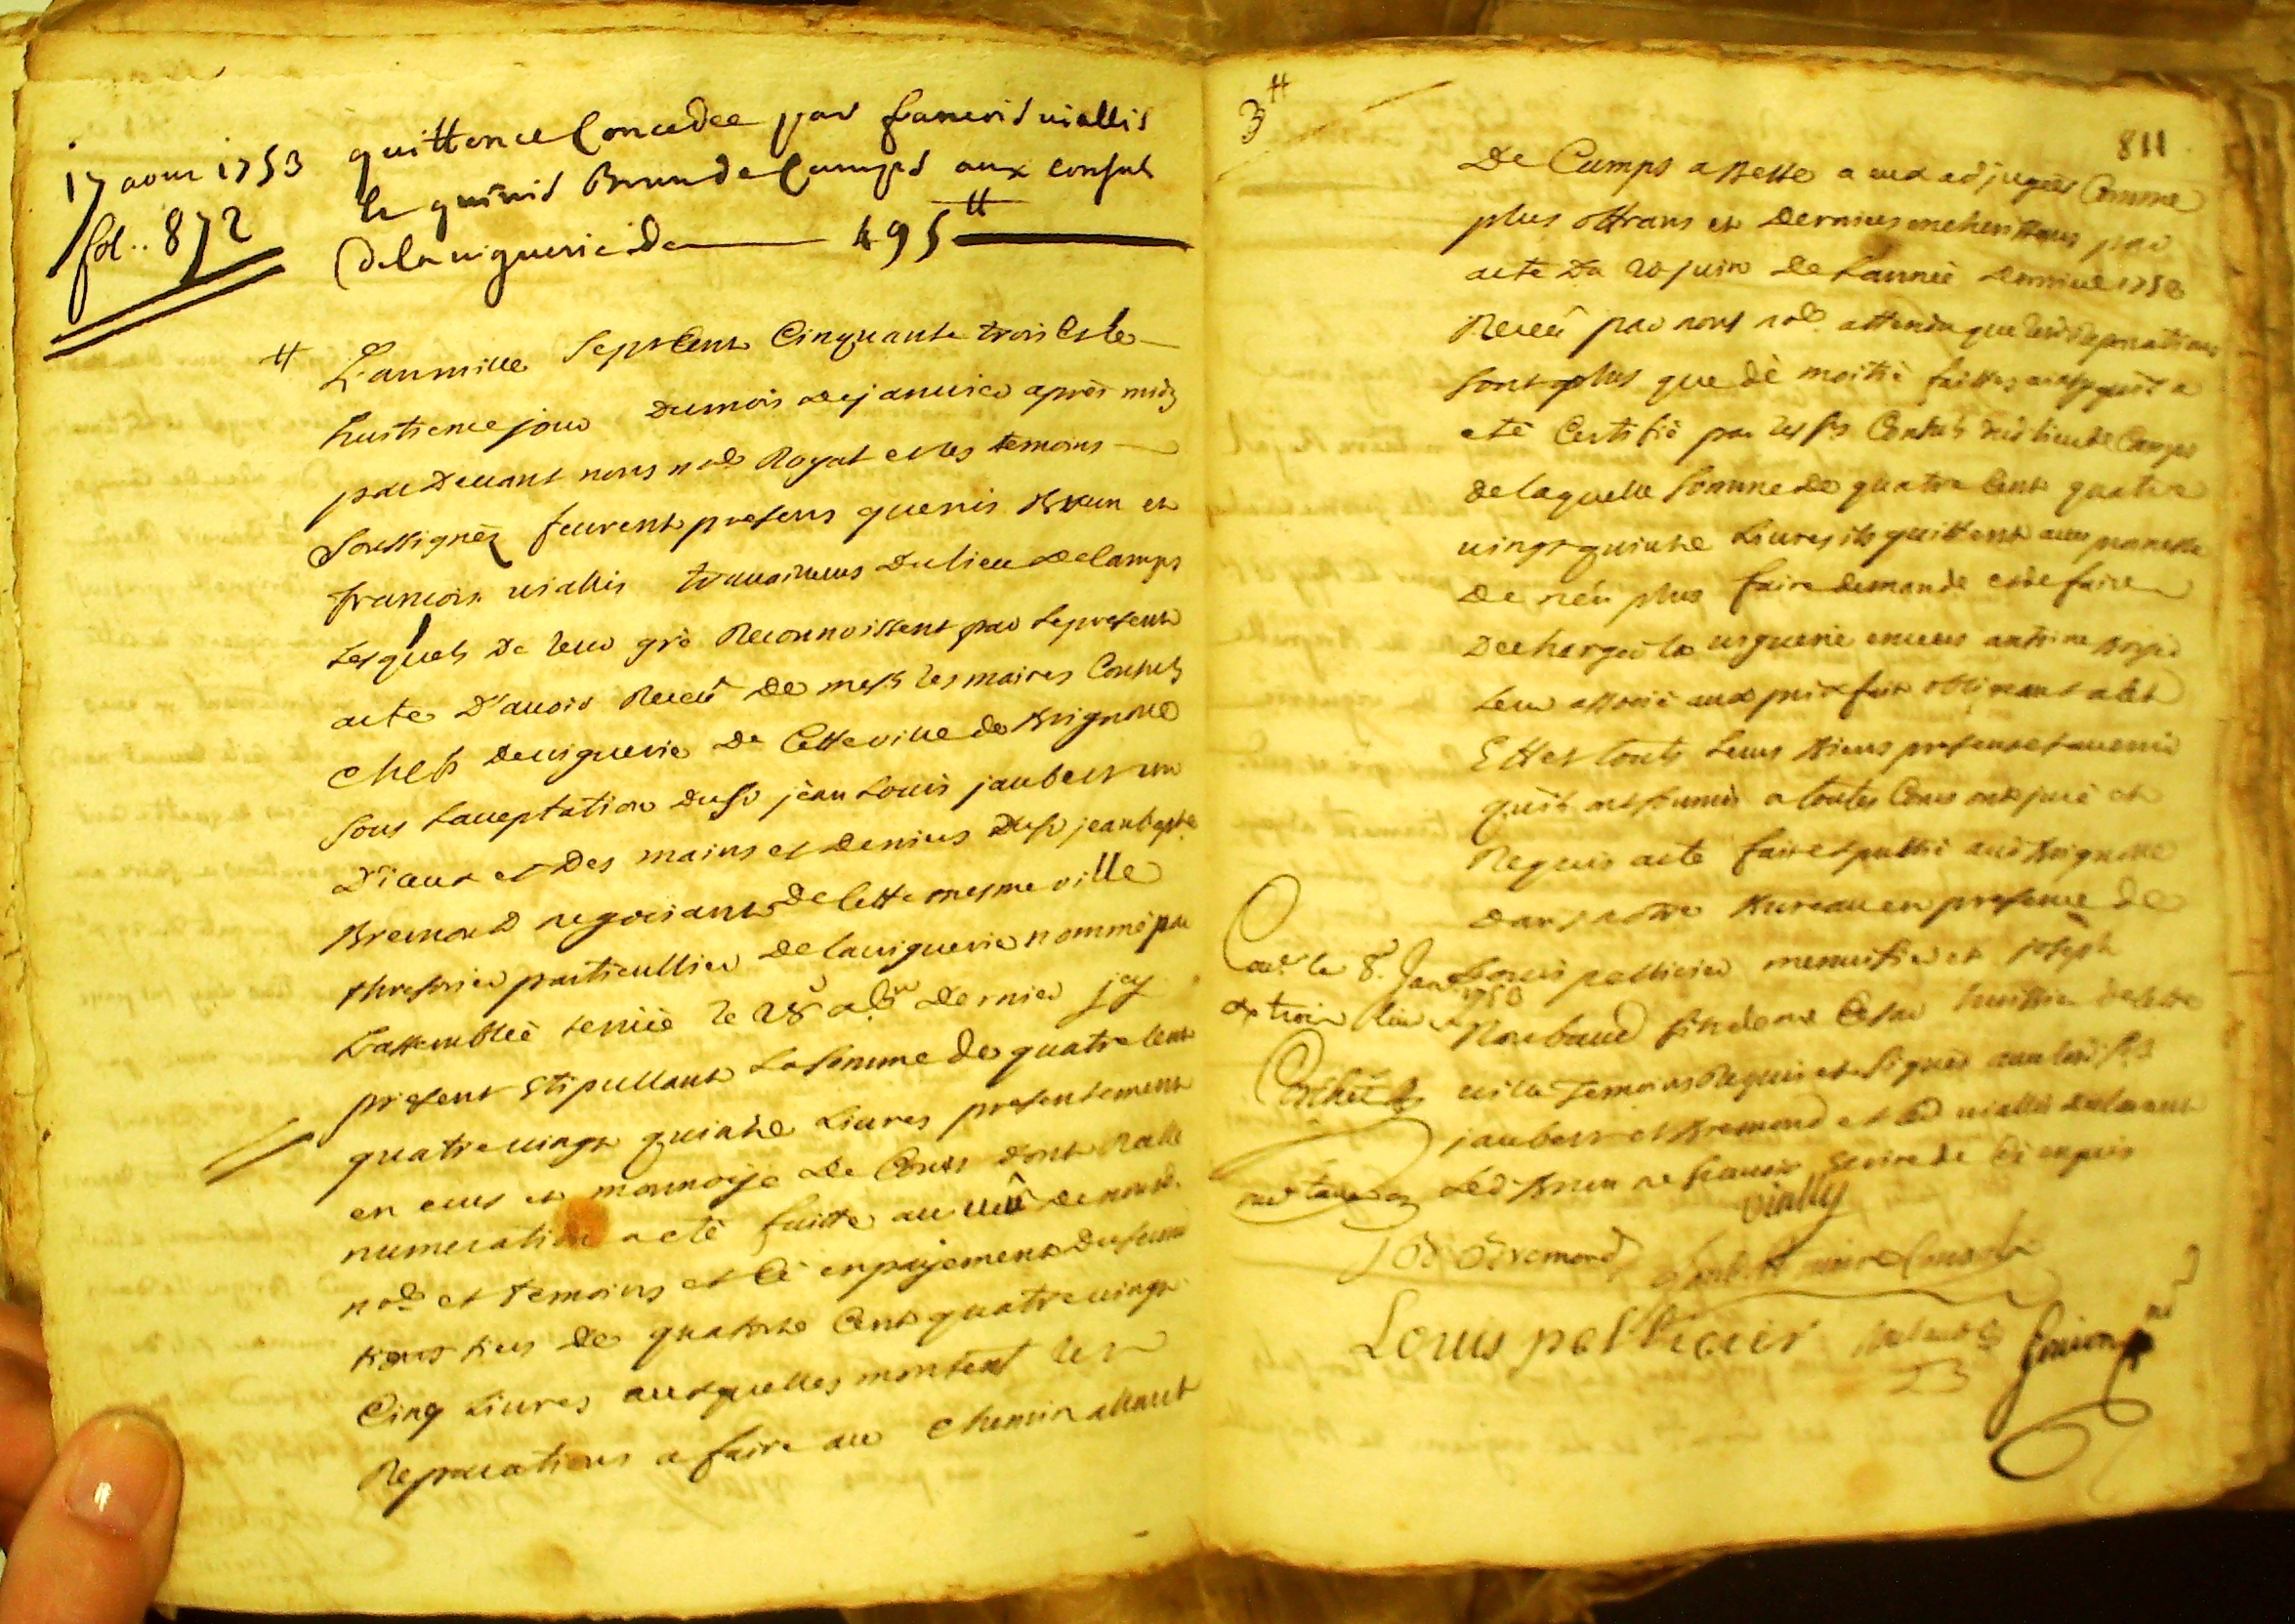 17 aoust 1753
fol.. 872
quittence Concedee par francois viallis
le quinis Brun de Camps aux consuls
de la viguerie de 495 ₶
L'an mille sept Cent Cinquante trois et le
huitieme jour du mois de janvier après midy
par devant nous nore Royal et les temoins
soussignez feurent presens quenis Brun et
francois viallis travailleurs du lieu de Camps
Lesquels de leur gré Reconnoissent par le present
acte d'avoir Receû de messrs les maires Consuls
chefs de viguerie de Cette ville de Brignolle
sous l'acceptation du sr jean Louis jaubert un
d'iceux et des mains et deniers du sr jean bapte
Bremond negociant de Cette mesme ville
thresorier particullier de la viguerie nommé par
L'assemblée tenüe le 28 xbre dernier jcy
present stipullant La somme de quatre Cent
quatre vingt quinze Livres presentement
en ecus et monnoye de Cours dont Ralle
numeration a eté faitte au veû de nousd.
nore et temoins et Ce en payement du second
tiers de quatorze Cent quatre vingt
Cinq Livres auxquelles montent les
Reparations a faire au chemin allant
3 ₶
811
De Camps a Besse a eux adjugées Comme
plus offrans et derniers encherisseurs par
acte du 20 juin de L'année derniere 1752
Receû par nous nore attendu que lesd Reparations
sont plus que de moitié faittes ainsy qu'il a
eté Certifié par les srs Consuls dud lieu de Camps
de laquelle somme de quatre Cent quatre
vingt quinze Livres ils quittent avec promesse
de n'en plus faire demande et de faire
decharger la viguerie envers antoine
leur associé aux prix fait obligeant a cet
Effet touts leurs Biens presens et a venir
qu'ils ont soumis a toutes Cours ont juré et
Requis acte fait et publié aud Brignolle
dans notre Bureau en presence de
Louis pellicier menuisier et joseph
Roubaud fils de me Cesar huissier de Cette
ville Temoins Requis et signés avec lesd srs
jaubert et Bremond et led viallis
Led Brun ne scavoir Ecrire de Ce enquis
le 8. Janr 1753
trois livres
vially
Bremond
maire Consul
Louis pellicier